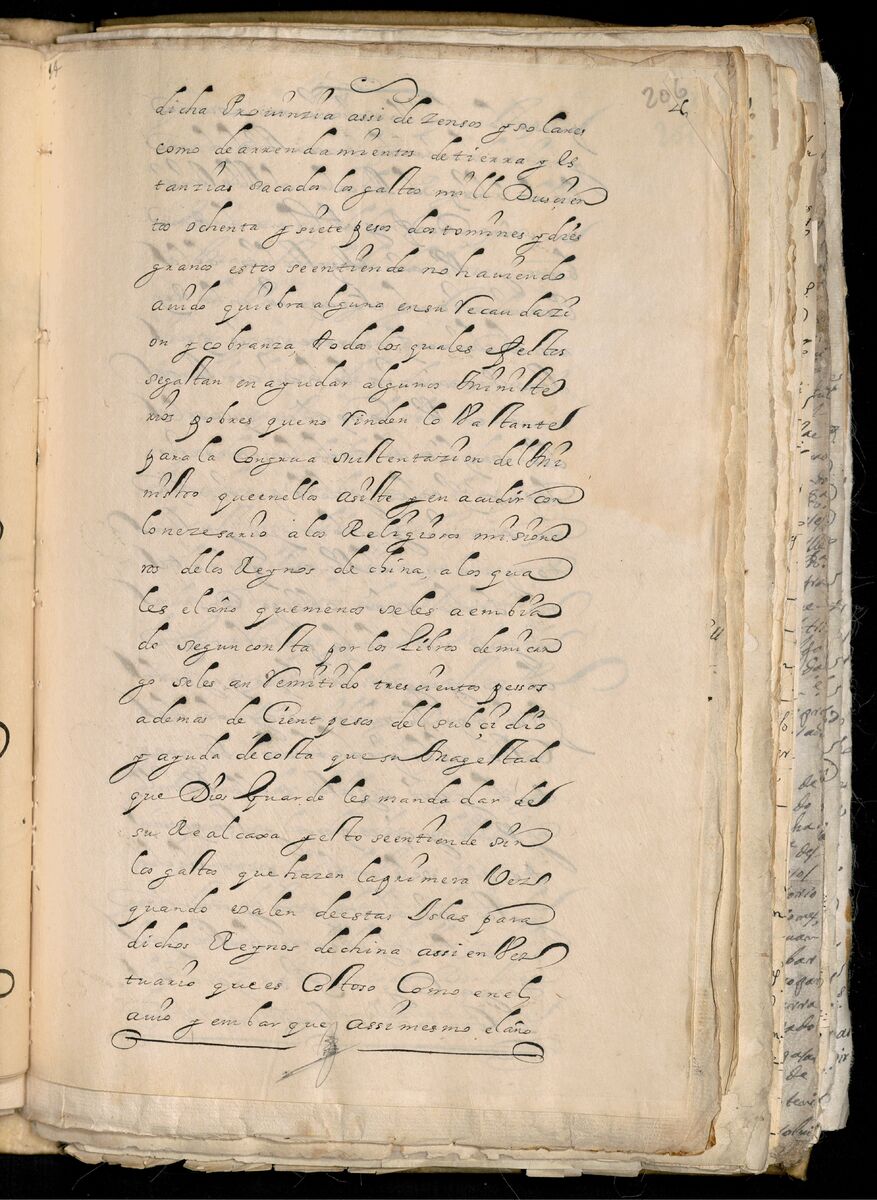 206
26
dicha Provinzia assi de Zensos y solares
como de arrendamientos de tierra y es
tanzias sacados los gastos mill Duscien
tos ochenta y siete pesos dos tomines y dies
granos estos se entiende no haviendo
avido quiebra alguna en su recaudazi
on y cobranza, todos los quales efectos
se gastan en ayudar algunos Ministe
rios pobres que no rinden lo Bastante
para la Congrua sustentazion del Mi
nistro que en ellos asiste y en acudir con
lo nezesario a los Religiosos misione
ros de los Reynos de china, a los qua
les el año que menos se les a embia
do segun consta por los Libros de mi car
go se les an remitido trescientos pessos
ademas de Cient pesos del subçidio
y ayuda de costa que su Magestad
que Dios Guarde les manda dar de
su Real caxa y esto se entiende sin
los gastos que hazen la primera Vez
quando salen de estas Islas para
dichos Reynos de china assi en Ves
tuario que es Costoso Como en el
avio y embarque assimesmo el año